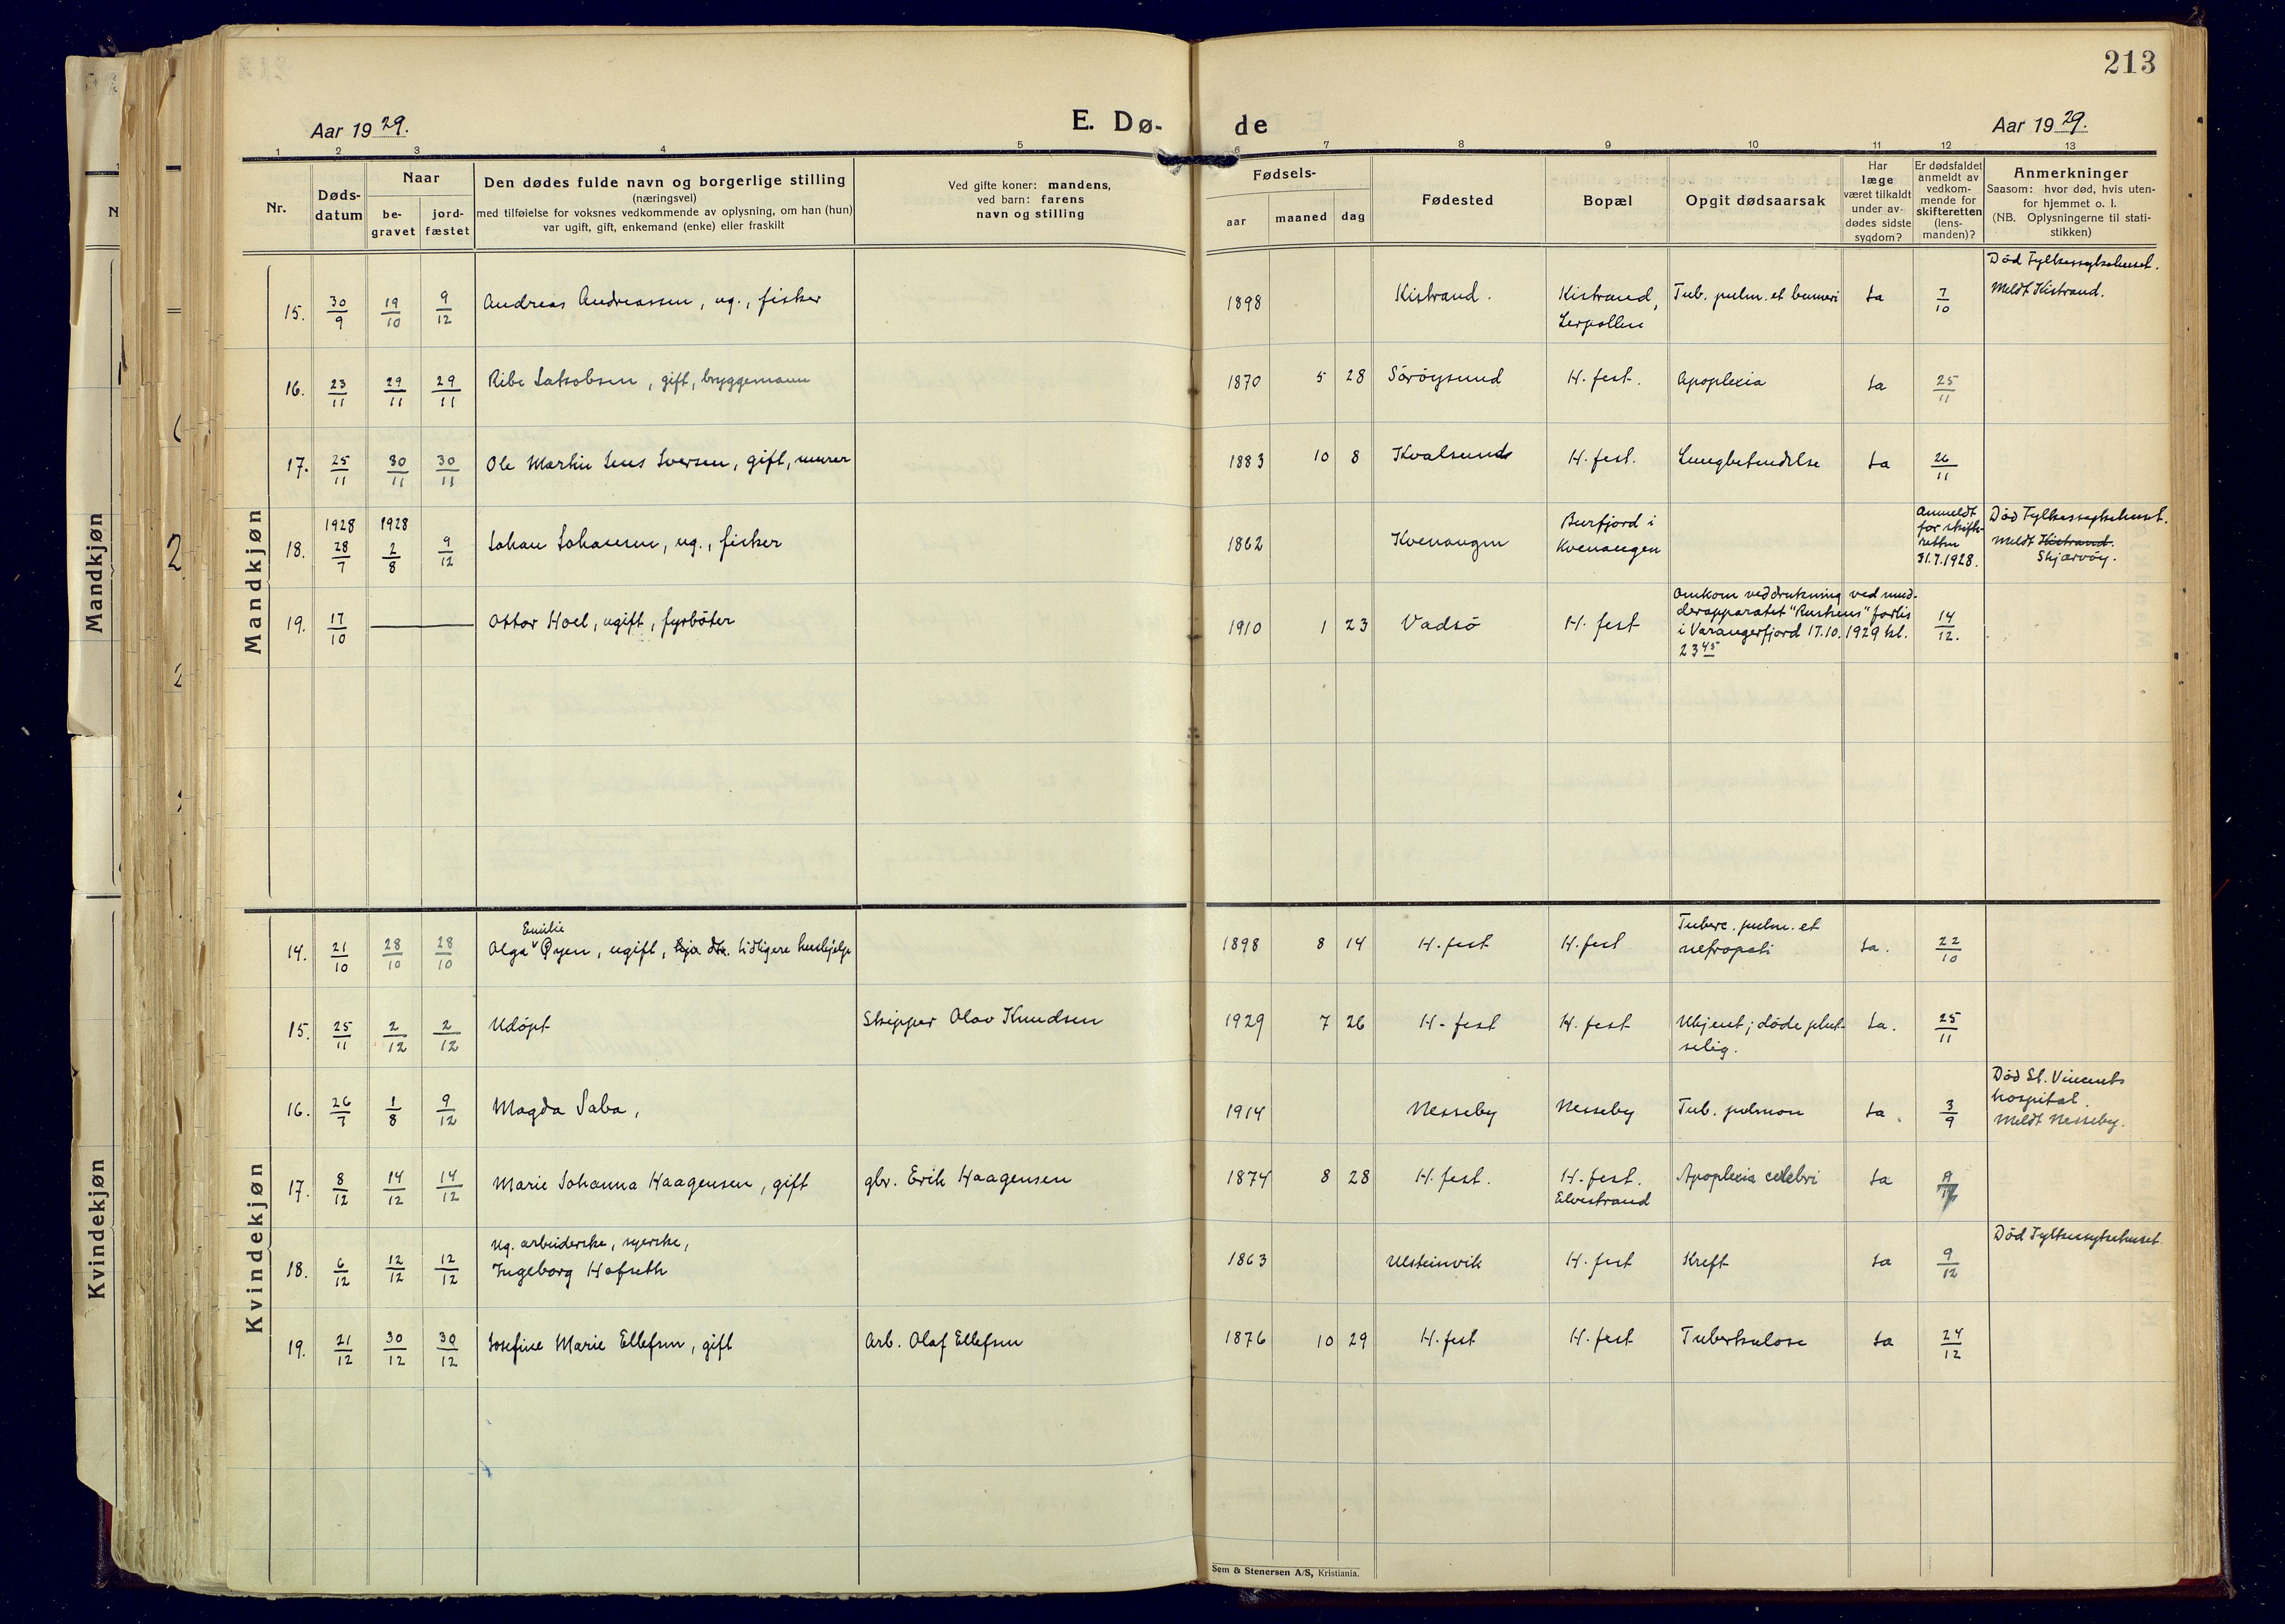 213
Aar 1929.
E. Dø-
de
Aar 1929.
1 2 3 4 5 6 7 8 9 10 11 12 13
Nr.
Døds-
datum
Naar
be-
gravet
jord-
fæstet
Den dødes fulde navn og borgerlige stilling
(næringsvei)
med tilføielse for voksnes vedkommende av oplysning, om han (hun)
var ugift, gift, enkemand (enke) eller fraskilt
Ved gifte koner: mandens,
ved barn: farens
navn og stilling
Fødsels-
aar
maaned
dag
Fødested
Bopæl
Opgit dødsaarsak
Har
læge
været tilkaldt
under av-
dødes sidste
sygdom?
Er dødsfaldet
anmeldt av
vedkom-
mende for
skifteretten
(lens-
manden)?
Anmerkninger
Saasom: hvor død, hvis uten-
for hjemmet o. l.
(NB. Oplysningerne til stati-
stikken)
Mandkjøn
Mandkjøn
15. 30/9 19/10 9/12 Andreas Andreassen, ug., fisker 1898 Kistrand. Kistrand, Tub. pulm. et humeri Ja 7/10
Lerpollen
Død Fylkessykehuset.
Meldt Kistrand.
16. 23/11 29/11 29/11 Ribe Jakobsen, gift, bryggemann 1870 5 28 Söröysund H. fest. Apoplexia Ja 25/11
17. 25/11 30/11 30/11 Ole Martin Jens Iversen, gift, murer 1883 10 8 Kvalsund H. fest. Lungbetendelse Ja 26/11
1928 1928
18. 28/7 2/8 9/12 Johan Johansen, ug., fisker 1862 Kvenangen
Burfjord i
Kvenangen
Anmeldt
for skifte-
retten
31.7.1928.
Død Fylkessykehuset.
Meldt Kistrand.
Skjærvöy.
19. 17/10 Ottar Hoel, ugift, fyrböter 1910 1 23 Vadsö H. fest
Omkom ved drukning ved mud-
derapparatet forlis
i Varangerfjord 17.10.1929 kl.
23 45
14/12.
Kvindekjøn
Kvindekjøn
Emilie
14. 21/10 28/10 28/10 Olga Øyen, ugift, tidligere hushjelp 1898 8 14 H. fest H. fest
Tuberc. pulm. et
nefropati
Ja. 22/10
15. 25/11 2/12 2/12 Udöpt Skipper Olav Knudsen 1929 7 26 H. fest H. fest
Ukjent; döde plut-
selig.
Ja. 25/11
16. 26/7 1/8 9/12 Magda Saba, 1914 Nesseby Nesseby Tub. pulmon Ja. 3/9
Død St. Vincents
hospital.
Meldt Nesseby.
17. 8/12 14/12 14/12 Marie Johanna Haagensen, gift gbr. Erik Haagensen 1874 8 28 H. fest. H. fest. Apoplexia celebri Ja 9/12
Elvestrand
Ug. arbeiderske, syerske,
18. 6/12 12/12 12/12 Ingeborg Hofseth 1863 Ulsteinvik H. fest Kreft Ja 9/12
Død Fylkessykehuset
19. 21/12 30/12 30/12 Josefine Marie Ellefsen, gift Arb. Olaf Ellefsen 1876 10 29 H. fest H. fest Tuberkulose Ja 24/12
Sem & Stenersen A/S, Kristiania.